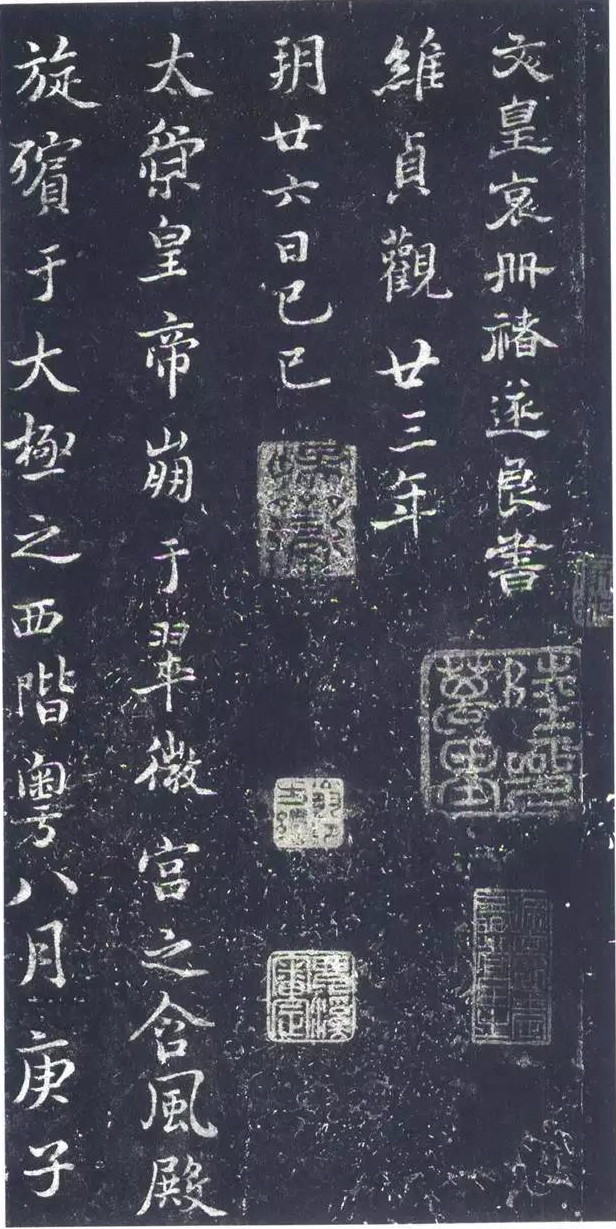 文皇哀冊褚遂良書
維貞觀廿三年
玥廿六日己巳
太宗皇帝崩于翠微宮之含風殿
旋殯于大極之西階粵八月庚子